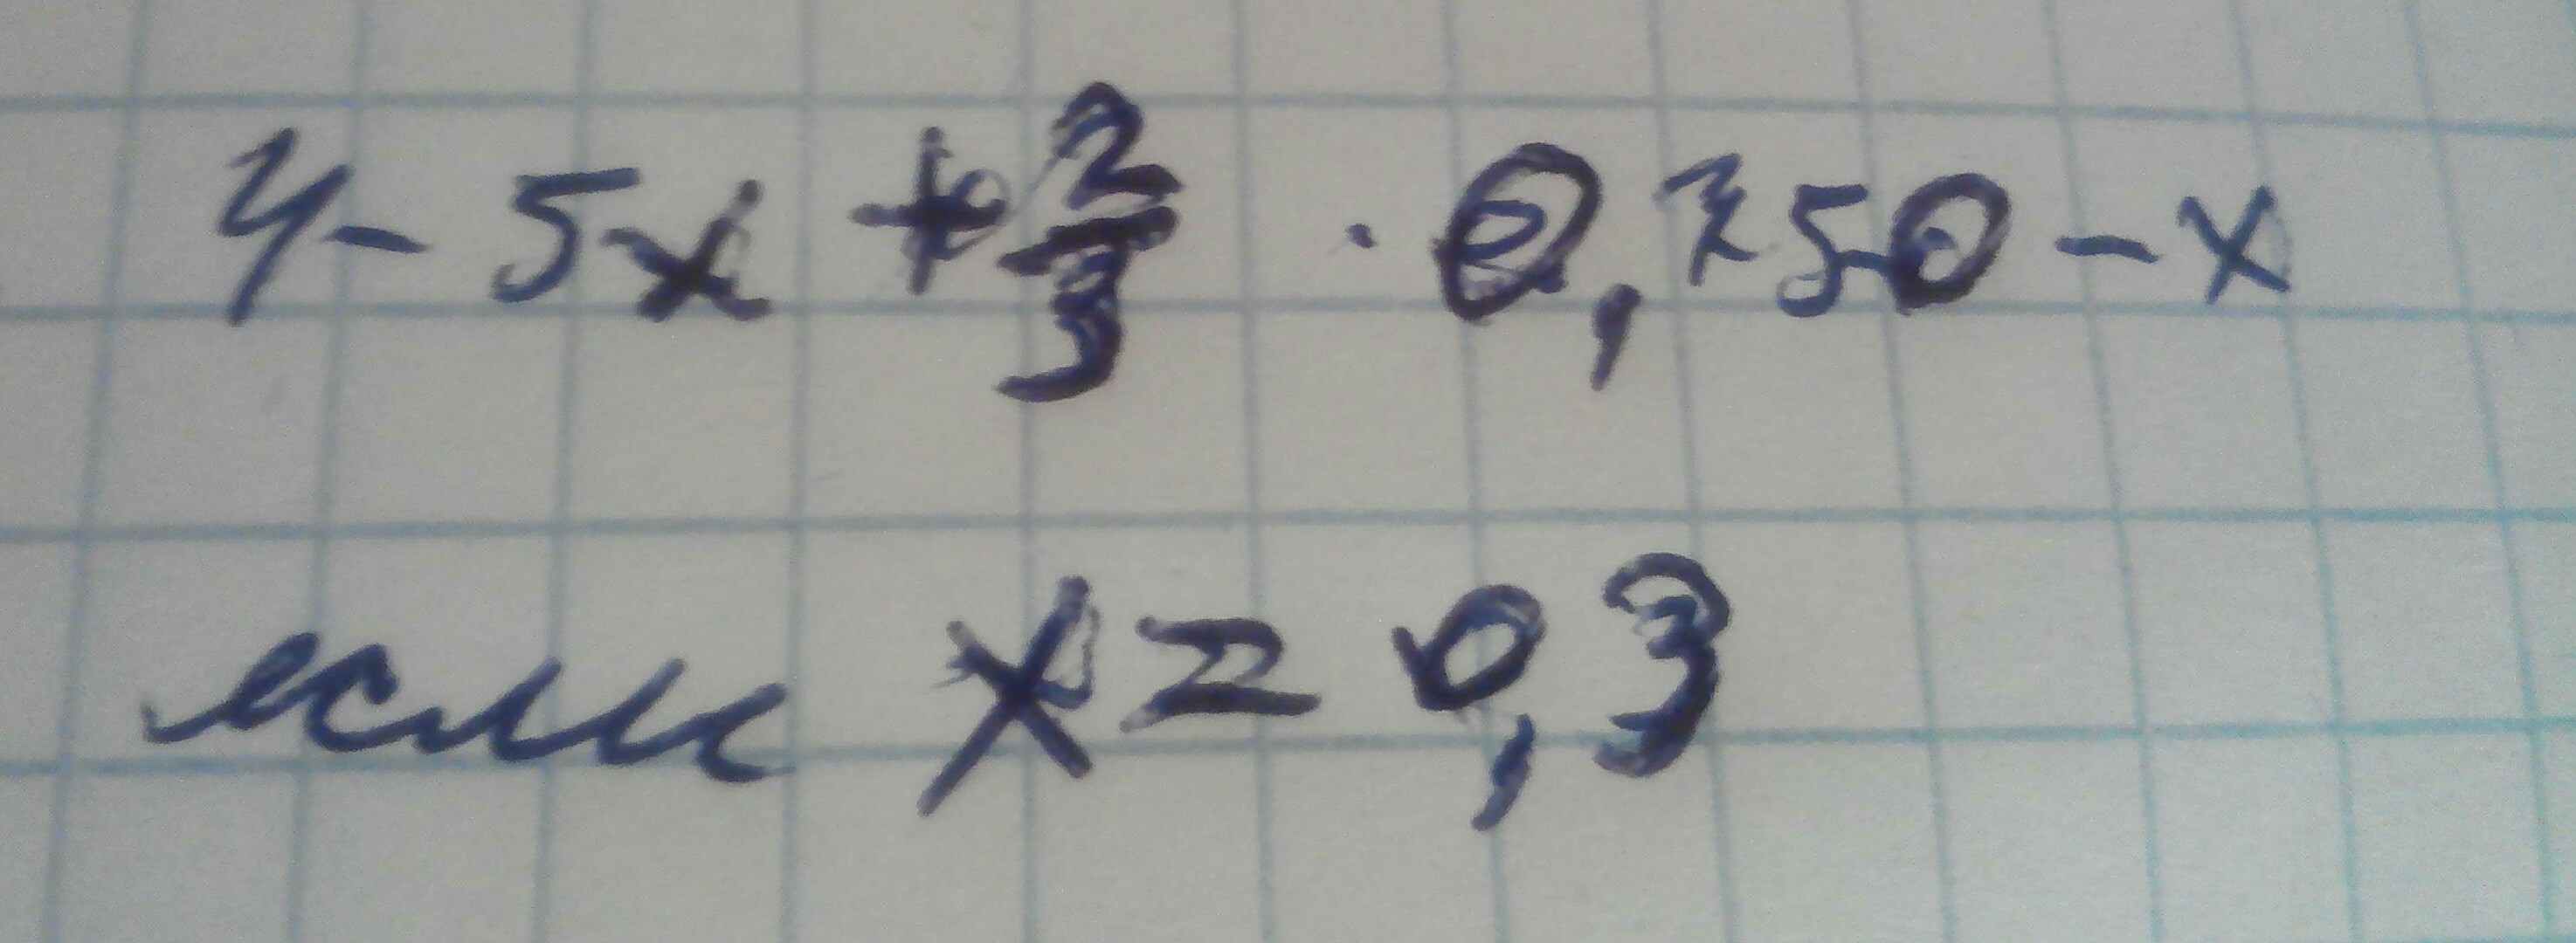 4 - 5x + 2/3 · 0,750 - x
если x = 0,3